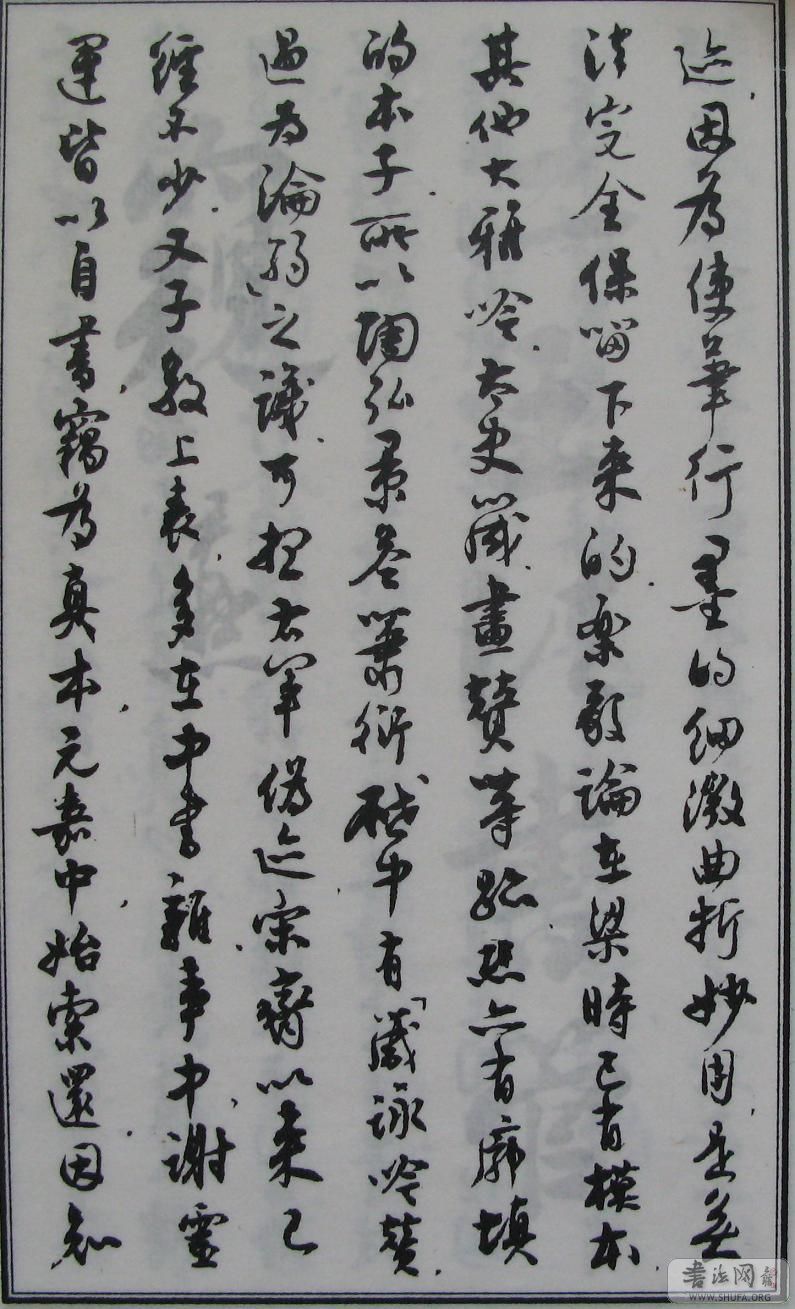 迹、因為使筆行墨的細微曲折妙用是無
法完全保留下来的、樂毅論在梁時已有模本、
其他大雅吟、太史箴、畫贊等跡、恐亦有廓填
的本子、所以陶弘景答蕭衍啟中有「箴詠吟贊、
過為淪弱」之議、可抵右軍偽迹宋齊以来已
經不少、又子敬上表、多在中書雜事中、謝靈
運皆以自書、竊為真本、元嘉中始索還、因知
書法网
WWW.SHUFA.ORG